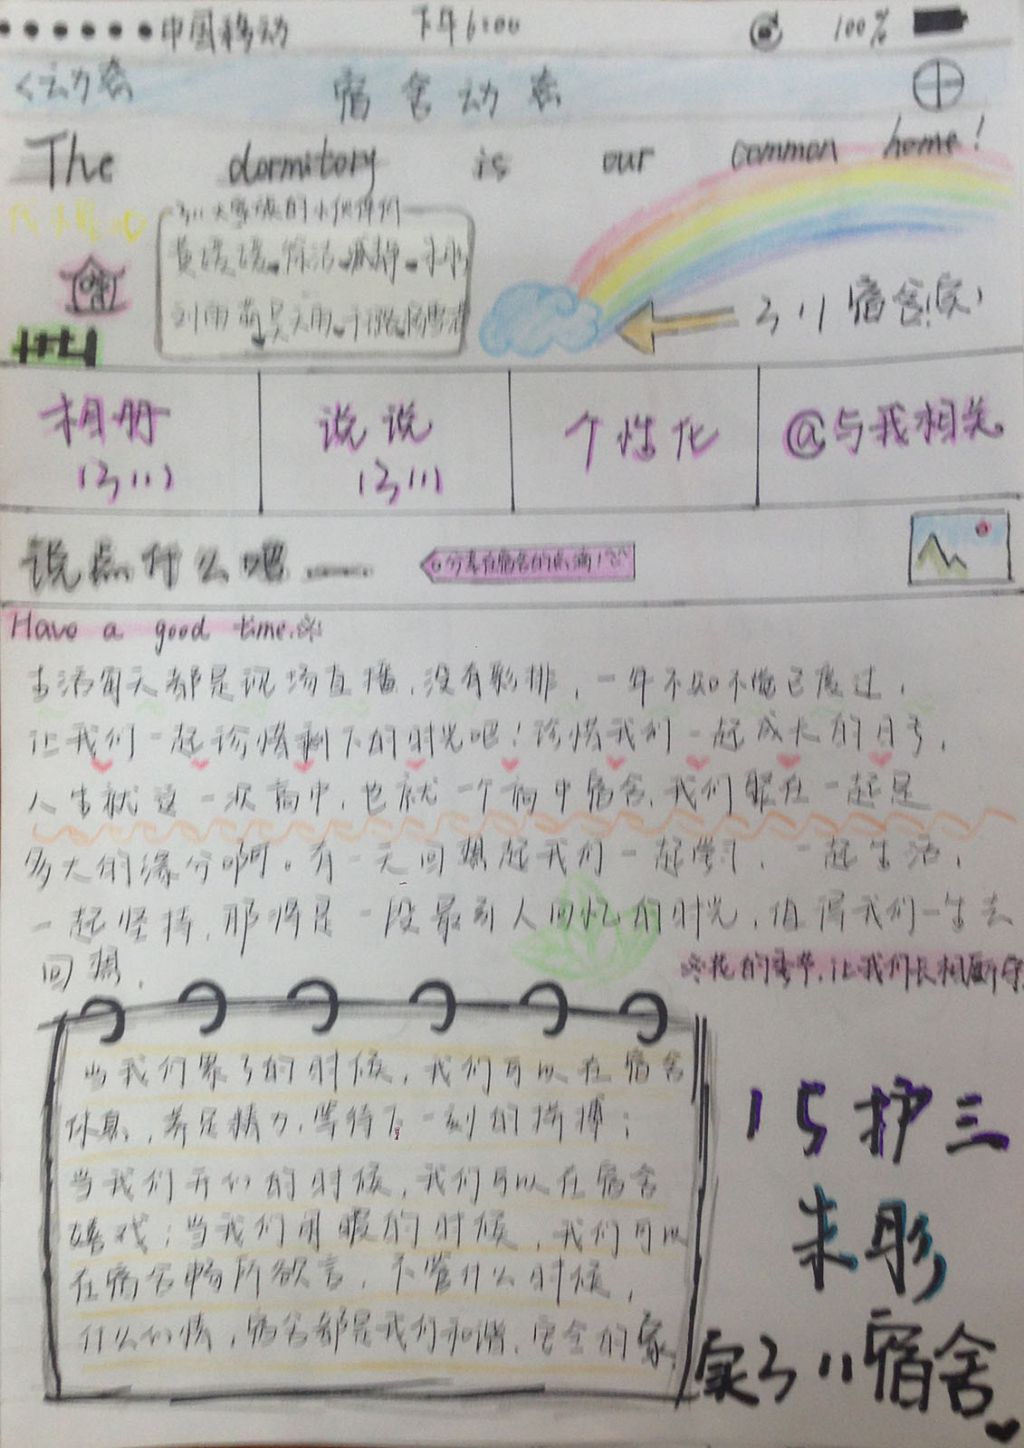 中国移动 下午6:00 100%
<动态 宿舍动态
The dormitory is our common home!
311大家族的小伙伴们
311宿舍(家)
相册 说说 个性化 @与我相关
(311) (311)
说点什么吧…… 分享在宿舍的点滴
Have a good time.
生活每天都是现场直播,没有彩排,一年不知不觉已度过,
让我们一起珍惜剩下的时光吧!珍惜我们一起成长的日子,
人生就这一次高中,也就一个高中宿舍,我们能在一起是
多大的缘分啊。有一天回想起我们一起学习,一起生活,
一起坚持,那将是一段最引人回忆的时光,值得我们一生去
回想.
花的季节,让我们长相厮守
当我们累了的时候,我们可以在宿舍
休息,养足精力,等待下一刻的拼搏;
当我们开心的时候,我们可以在宿舍
嬉戏;当我们闲暇的时候,我们可以
在宿舍畅所欲言,不管什么时候,
什么心情,宿舍都是我们和谐、安全的家.
15护三
朱彤
家311宿舍